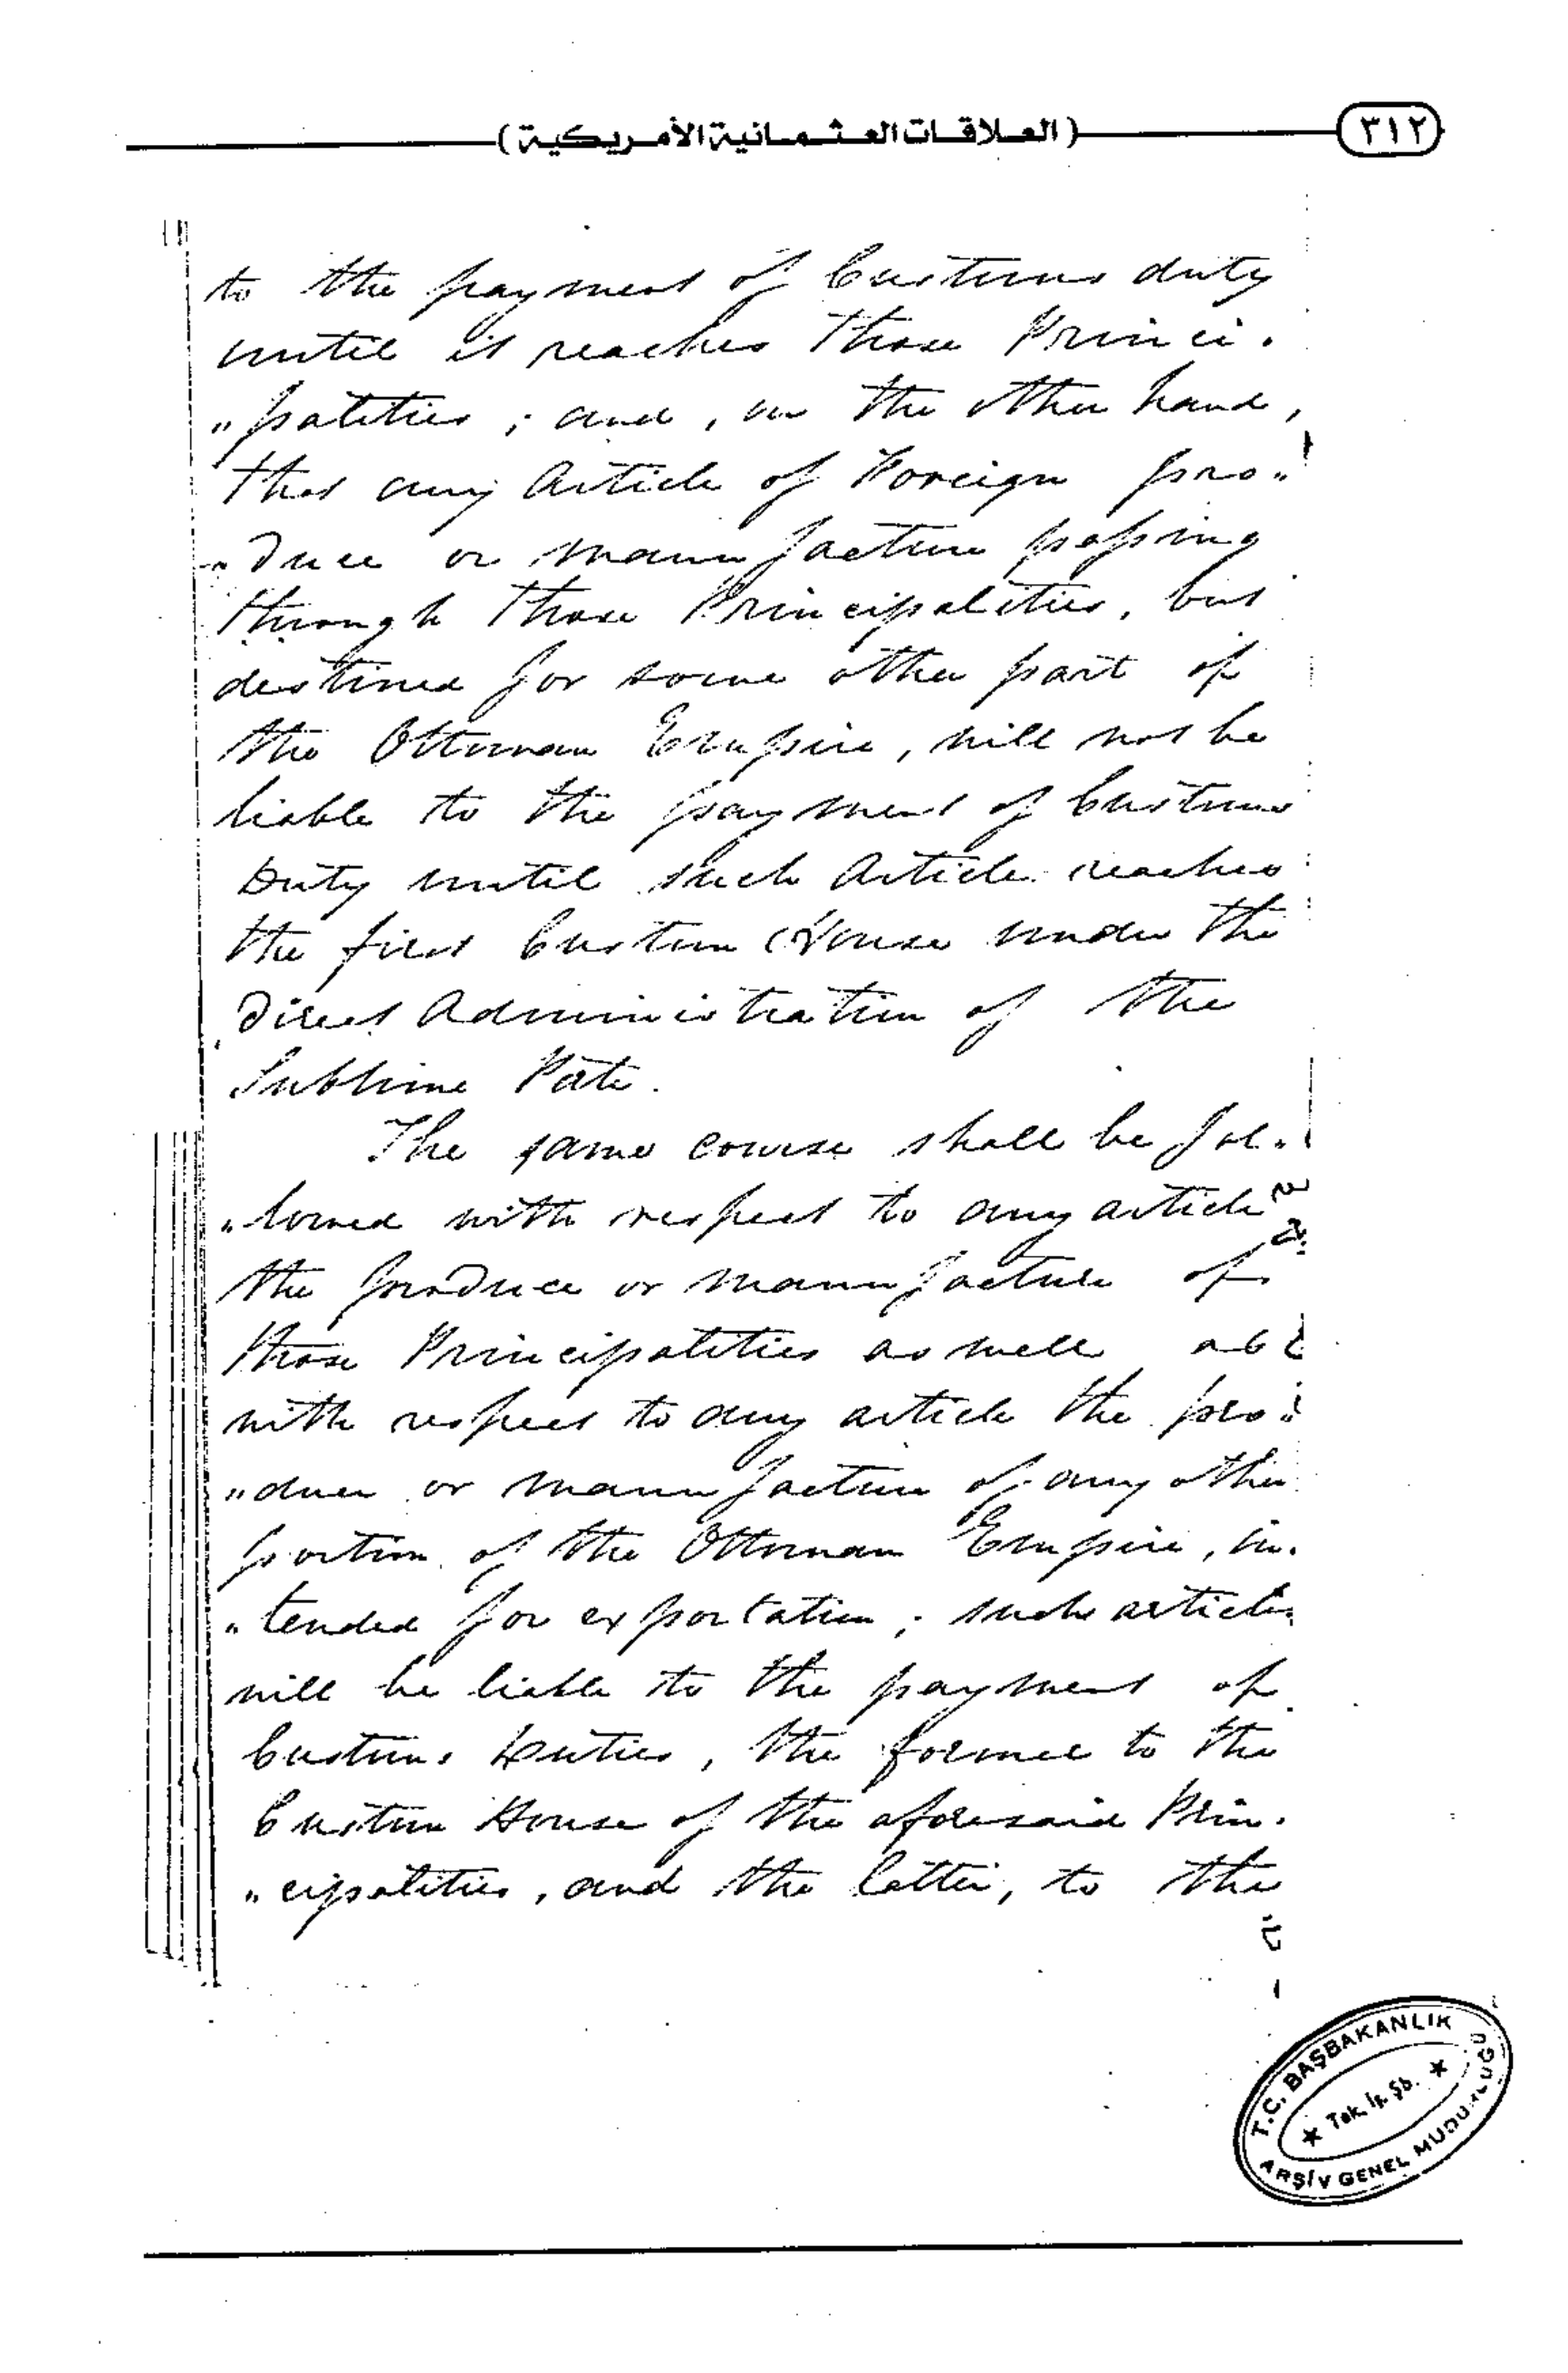 (العلاقات العثمانية الأمريكية)
٣١٢
to the payment of Customs duty
until it reaches those Princi.
"palities; and, on the other hand,
that any Article of Foreign pro"
"duce or manufacture passing
through those Principalities, but
destined for some other part of
the Ottoman Empire, will not be
liable to the payment of Customs
Duty until such Article reaches
the first Custom House under the
Direct Administration of the
Sublime Porte.
The same course shall be fol"
"lowed with respect to any article
the produce or manufacture of
those Principalities as well as
with respect to any article the pro"
"duce or manufacture of any other
portion of the Ottoman Empire, in.
"tended for exportation; such articles
will be liable to the payment of
Customs Duties, the former to the
Custom House of the aforesaid Prin.
"cipalities, and the latter, to the
T.C. BAŞBAKANLIK
★ Tek. İş. Şb. ★
ARŞİV GENEL MÜDÜRLÜĞÜ